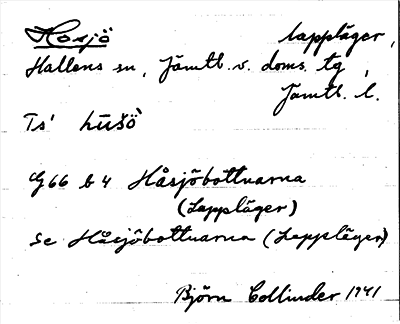 Hosjö lappläger,
Hallens sn, Jämtl. v. doms. tg,
Jämtl. l.
Ts' hūšò
G66 b 4 Håsjöbottnarna
(Lappläger)
se Håsjöbottnarna (Lappläger)
Björn Collinder 1941